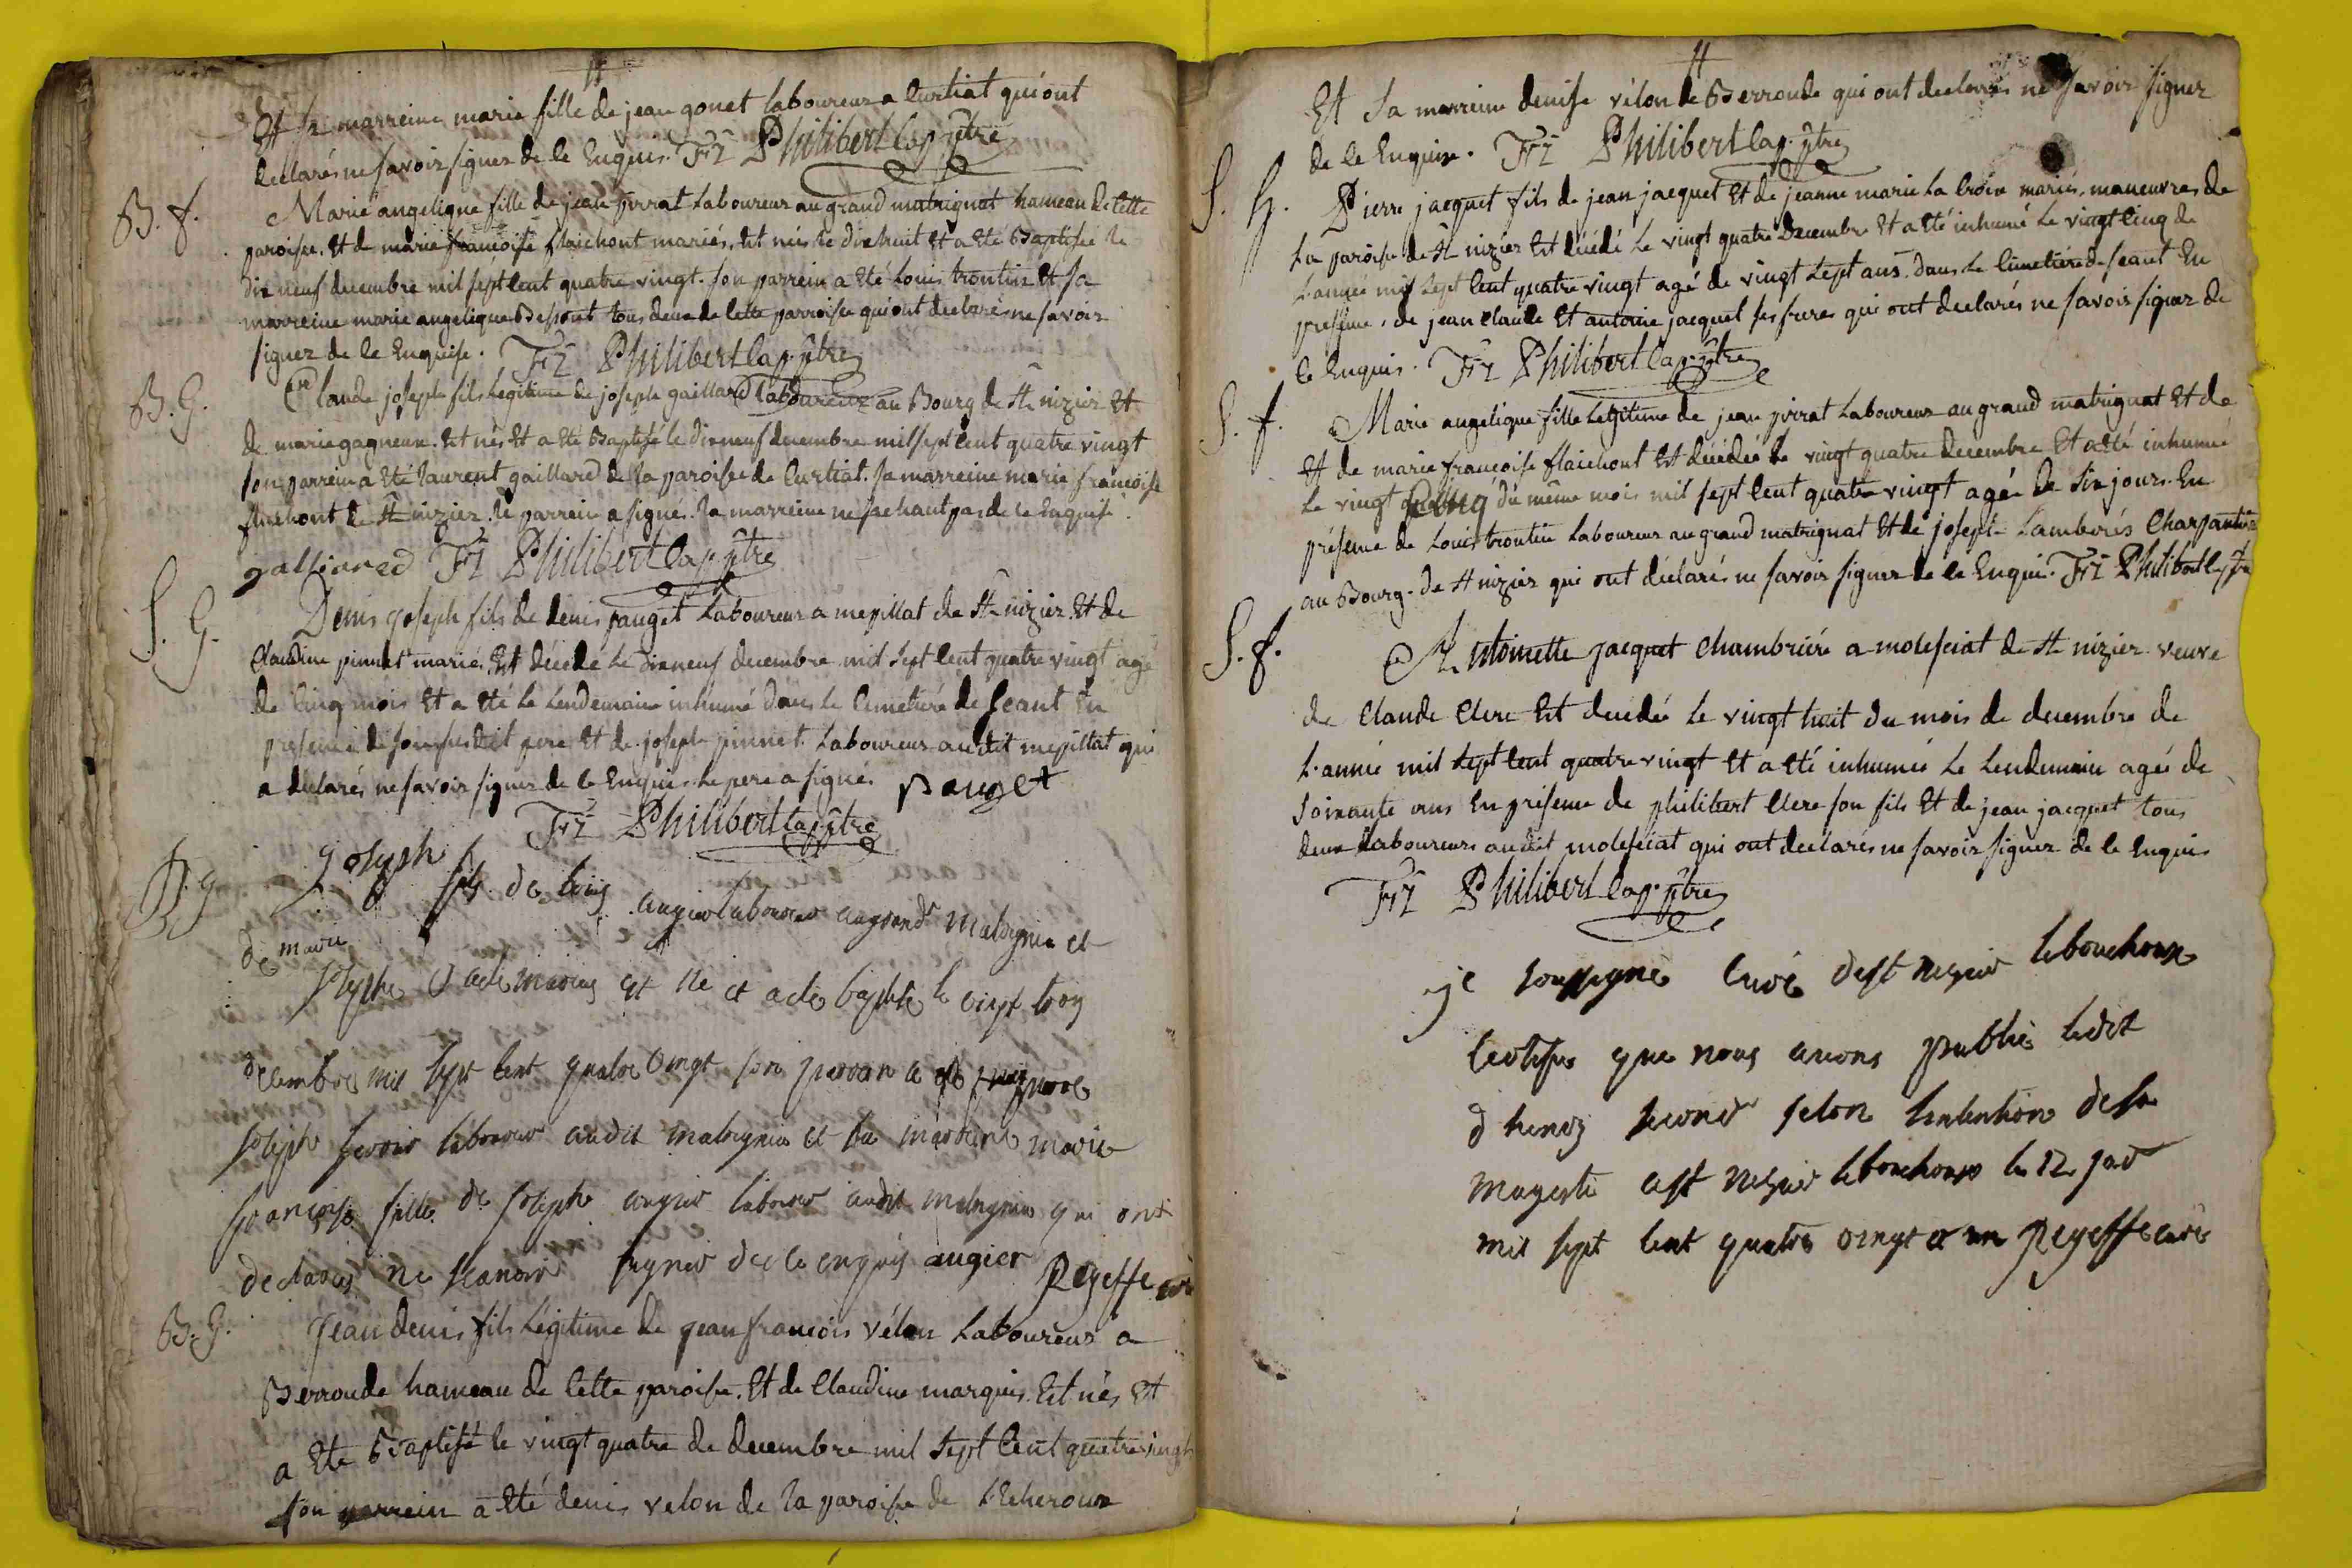 Et sa marreine marie fille de jean gonet laboureur a Curtiat qui ont
declarés ne savoir signer de ce Enquis. Frz Philibert Cap. ptre
B. f. Marie angelique fille de jean pirrat Laboureur au grand matrignat hameau de Cette
paroisse. Et de marie françoise flaichont mariés. Est née le dixhuit Et a Eté Baptisée le
dix neuf decembre mil sept Cent quatre vingt. son parrein a Eté Louis trontin Et sa
marreine marie angelique Bessont tous deux de Cette parroisse qui ont declarés ne savoir
signer de ce Enquise. Frz Philibert Cap. ptre
B. G. Claude joseph fils Legitime de joseph gaillard laboureur au Bourg de St nizier Et
de marie gagneur. Est nés Et a Eté Baptisé le dixneuf decembre mil sept Cent quatre vingt
son parrein a Eté laurent gaillard de la paroisse de Curtiat. sa marreine marie françoise
flaichont de St nizier. le parrein a signé. la marreine ne sachant pas de ce Enquise.
galliared Frz Philibert Cap. ptre
S. G. Denis joseph fils de denis pauget Laboureur a mepillat de St nizier. Et de
Claudine pinnet mariés. Est décédé Le dixneuf decembre mil sept Cent quatre vingt agé
de Cinq mois Et a Eté Le Lendemain inhumé dans Le Cemetiere de Ceant En
presence de son susdit pere Et de joseph pinnet Laboureur audit mepillat qui
a declarés ne savoir signer de ce Enquis. Le pere a signé. Pauget
Frz Philibert Cap. ptre
B. g. joseph fils de louis augier laboureur au grand matrignia et
de marie
josephe mariés est ne et a ete baptise le vingt trois
decembre mil sept cent quatre vingt son parrain a ete
joseph laboureur audit matrignia et sa marraine marie
françoise fille de joseph augier laboureur audit matrignia qui ont
declarés ne scavoir signer de ce enquis augier Peysse curé
B. G. Jean denis fils Légitime de jean françois vélon Laboureur a
Berroude hameau de Cette paroisse. Et de Claudine marquis. Est nés Et
a Ete Baptisé le vingt quatre de decembre mil sept Cent quatre vingt
son parrein a Eté denis velon de la paroise de Lécheroux
Et sa marreine denise vélon de Berroude qui ont declarés ne savoir signer
de ce Enquise. Frz Philibert Cap. ptre
S. G. Pierre jacquet fils de jean jacquet Et de jeanne marie La Croix mariés, manœuvres de
La paroisse de St nizier Est décédé Le vingt quatre Decembre Et a Eté inhumé Le vingt Cinq de
L'année mil sept Cent quatre vingt agé de vingt sept ans. dans Le Cimetiere de seant En
presence, de jean Claude Et antoine jacquet ses freres qui ont declarés ne savoir signer de
ce Enquis. Frz Philibert Cap. ptre
S. f. Marie angelique fille Legitime de jean pirrat Laboureur au grand matrignat Et de
Et de marie françoise flaichont Est décédée Le vingt quatre decembre Et a Eté inhumée
Le vingt Cinq du même mois mil sept Cent quatre vingt agée de Six jours. En
présence de Louis trontin Laboureur au grand matrignat Et de joseph Lamberés Charpantier
au Bourg de St nizier qui ont déclarés ne savoir signer de ce Enquis. Frz Philibert Cap. ptre
S. f. Antoinette jacquet Chambriére a molesciat de St nizier veuve
de Claude Clerc Est decedée Le vingt huit du mois de decembre de
L'année mil sept Cent quatre vingt Et a Eté inhumée Le Lendemain agée de
soixante ans En présence de philibert Clerc son fils Et de jean jacquet tous
deux Laboureurs audit molesciat qui ont declarés ne savoir signer de ce Enquis
Frz Philibert Cap. ptre
je soussigné curé de st nizier le bouchoux
certifie que nous avons publié ledit
d henry second selon lintention de sa
magesté a st nizier le bouchoux le 12 janv
mil sept cent quatre vingt et un Peysse curé